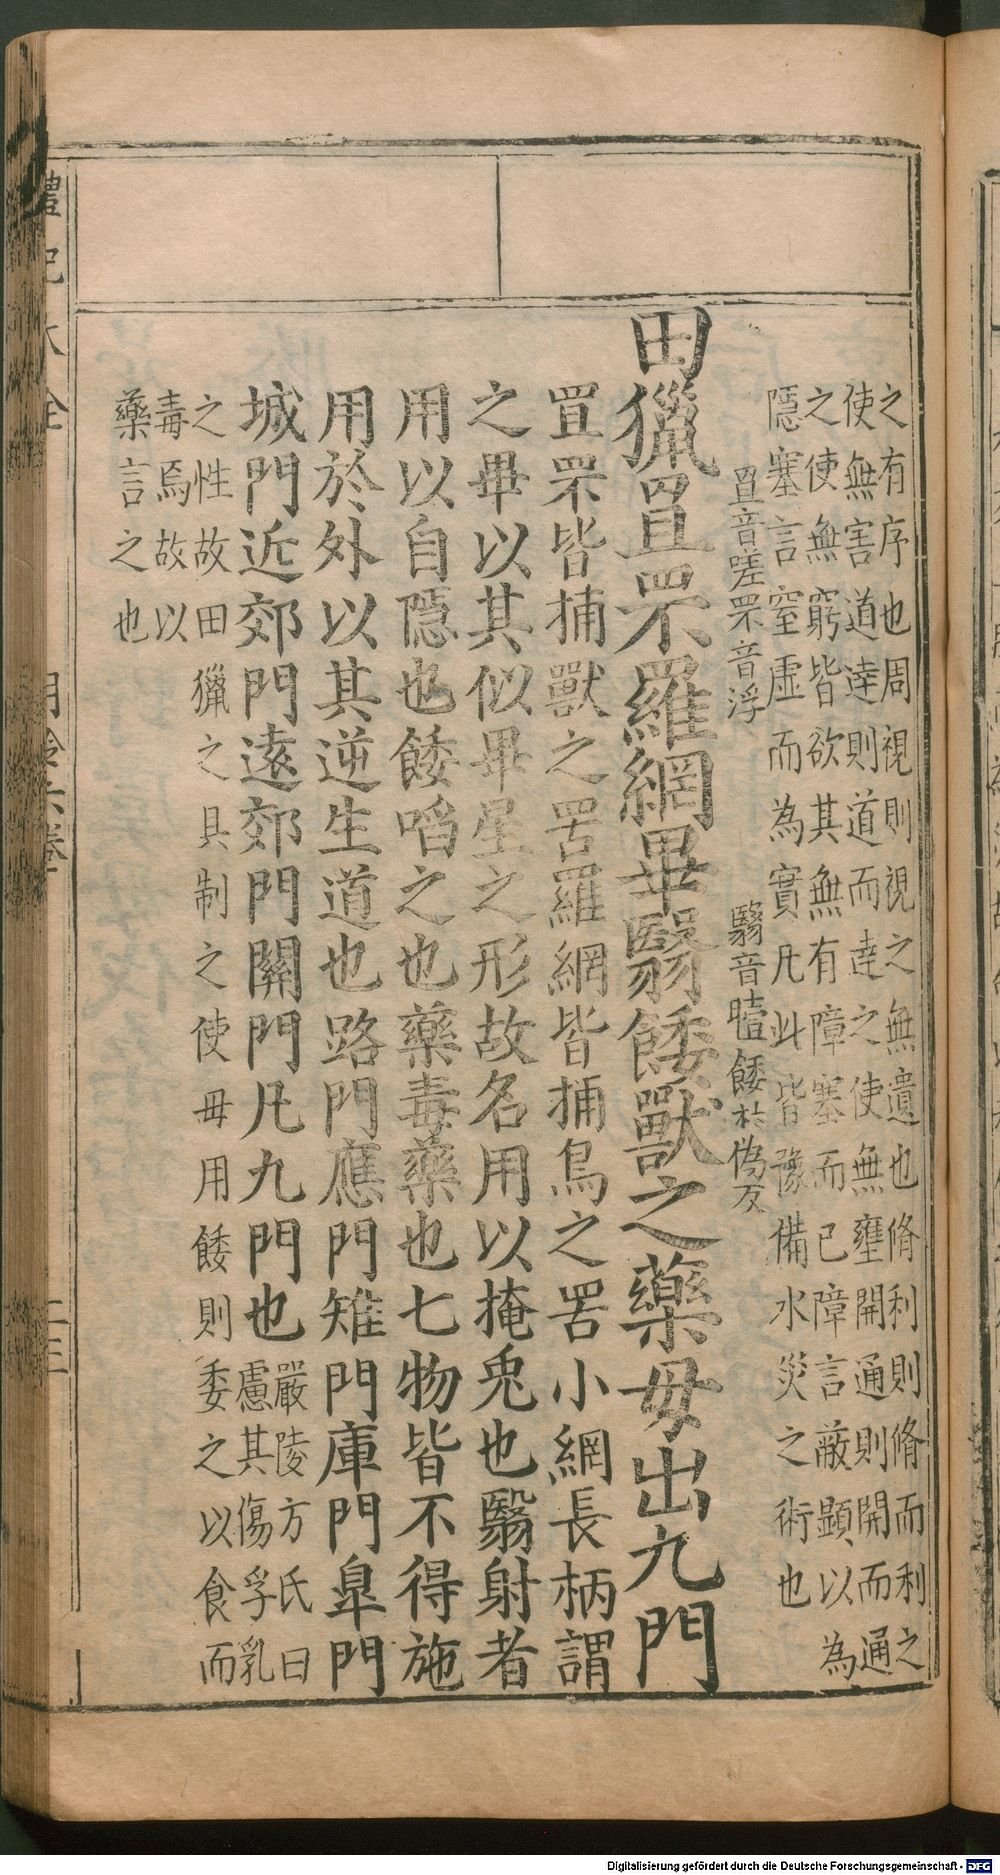 之有序也周視則視之無遺也脩利則脩而利之
使無害道達則道而達之使無壅開通則開而通
之使無窮皆欲其無有障塞而已障言蔽顯以為
隱塞言窒虛而為實凡此皆豫備水災之術也
罝音嗟罘音浮 翳音曀餧於偽反
田獵罝罘羅網畢翳餧獸之藥毋出九門
罝罘皆捕獸之罟羅網皆捕鳥之罟小網長柄謂
之畢以其似畢星之形故名用以掩兎也翳射者
用以自隱也餧啗之也藥毒藥也七物皆不得施
用於外以其逆生道也路門應門雉門庫門臯門
城門近郊門遠郊門關門凡九門也 嚴陵方氏曰
慮其傷孚乳
之性故田獵之具制之使毋用餧則委之以食而
毒焉故以
藥言之也
Digitalisierung gefördert durch die Deutsche Forschungsgemeinschaft - DFG